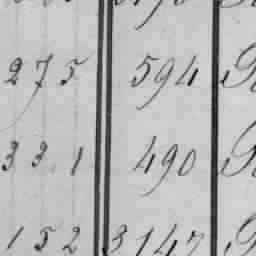 275 594
331 490
152 3147